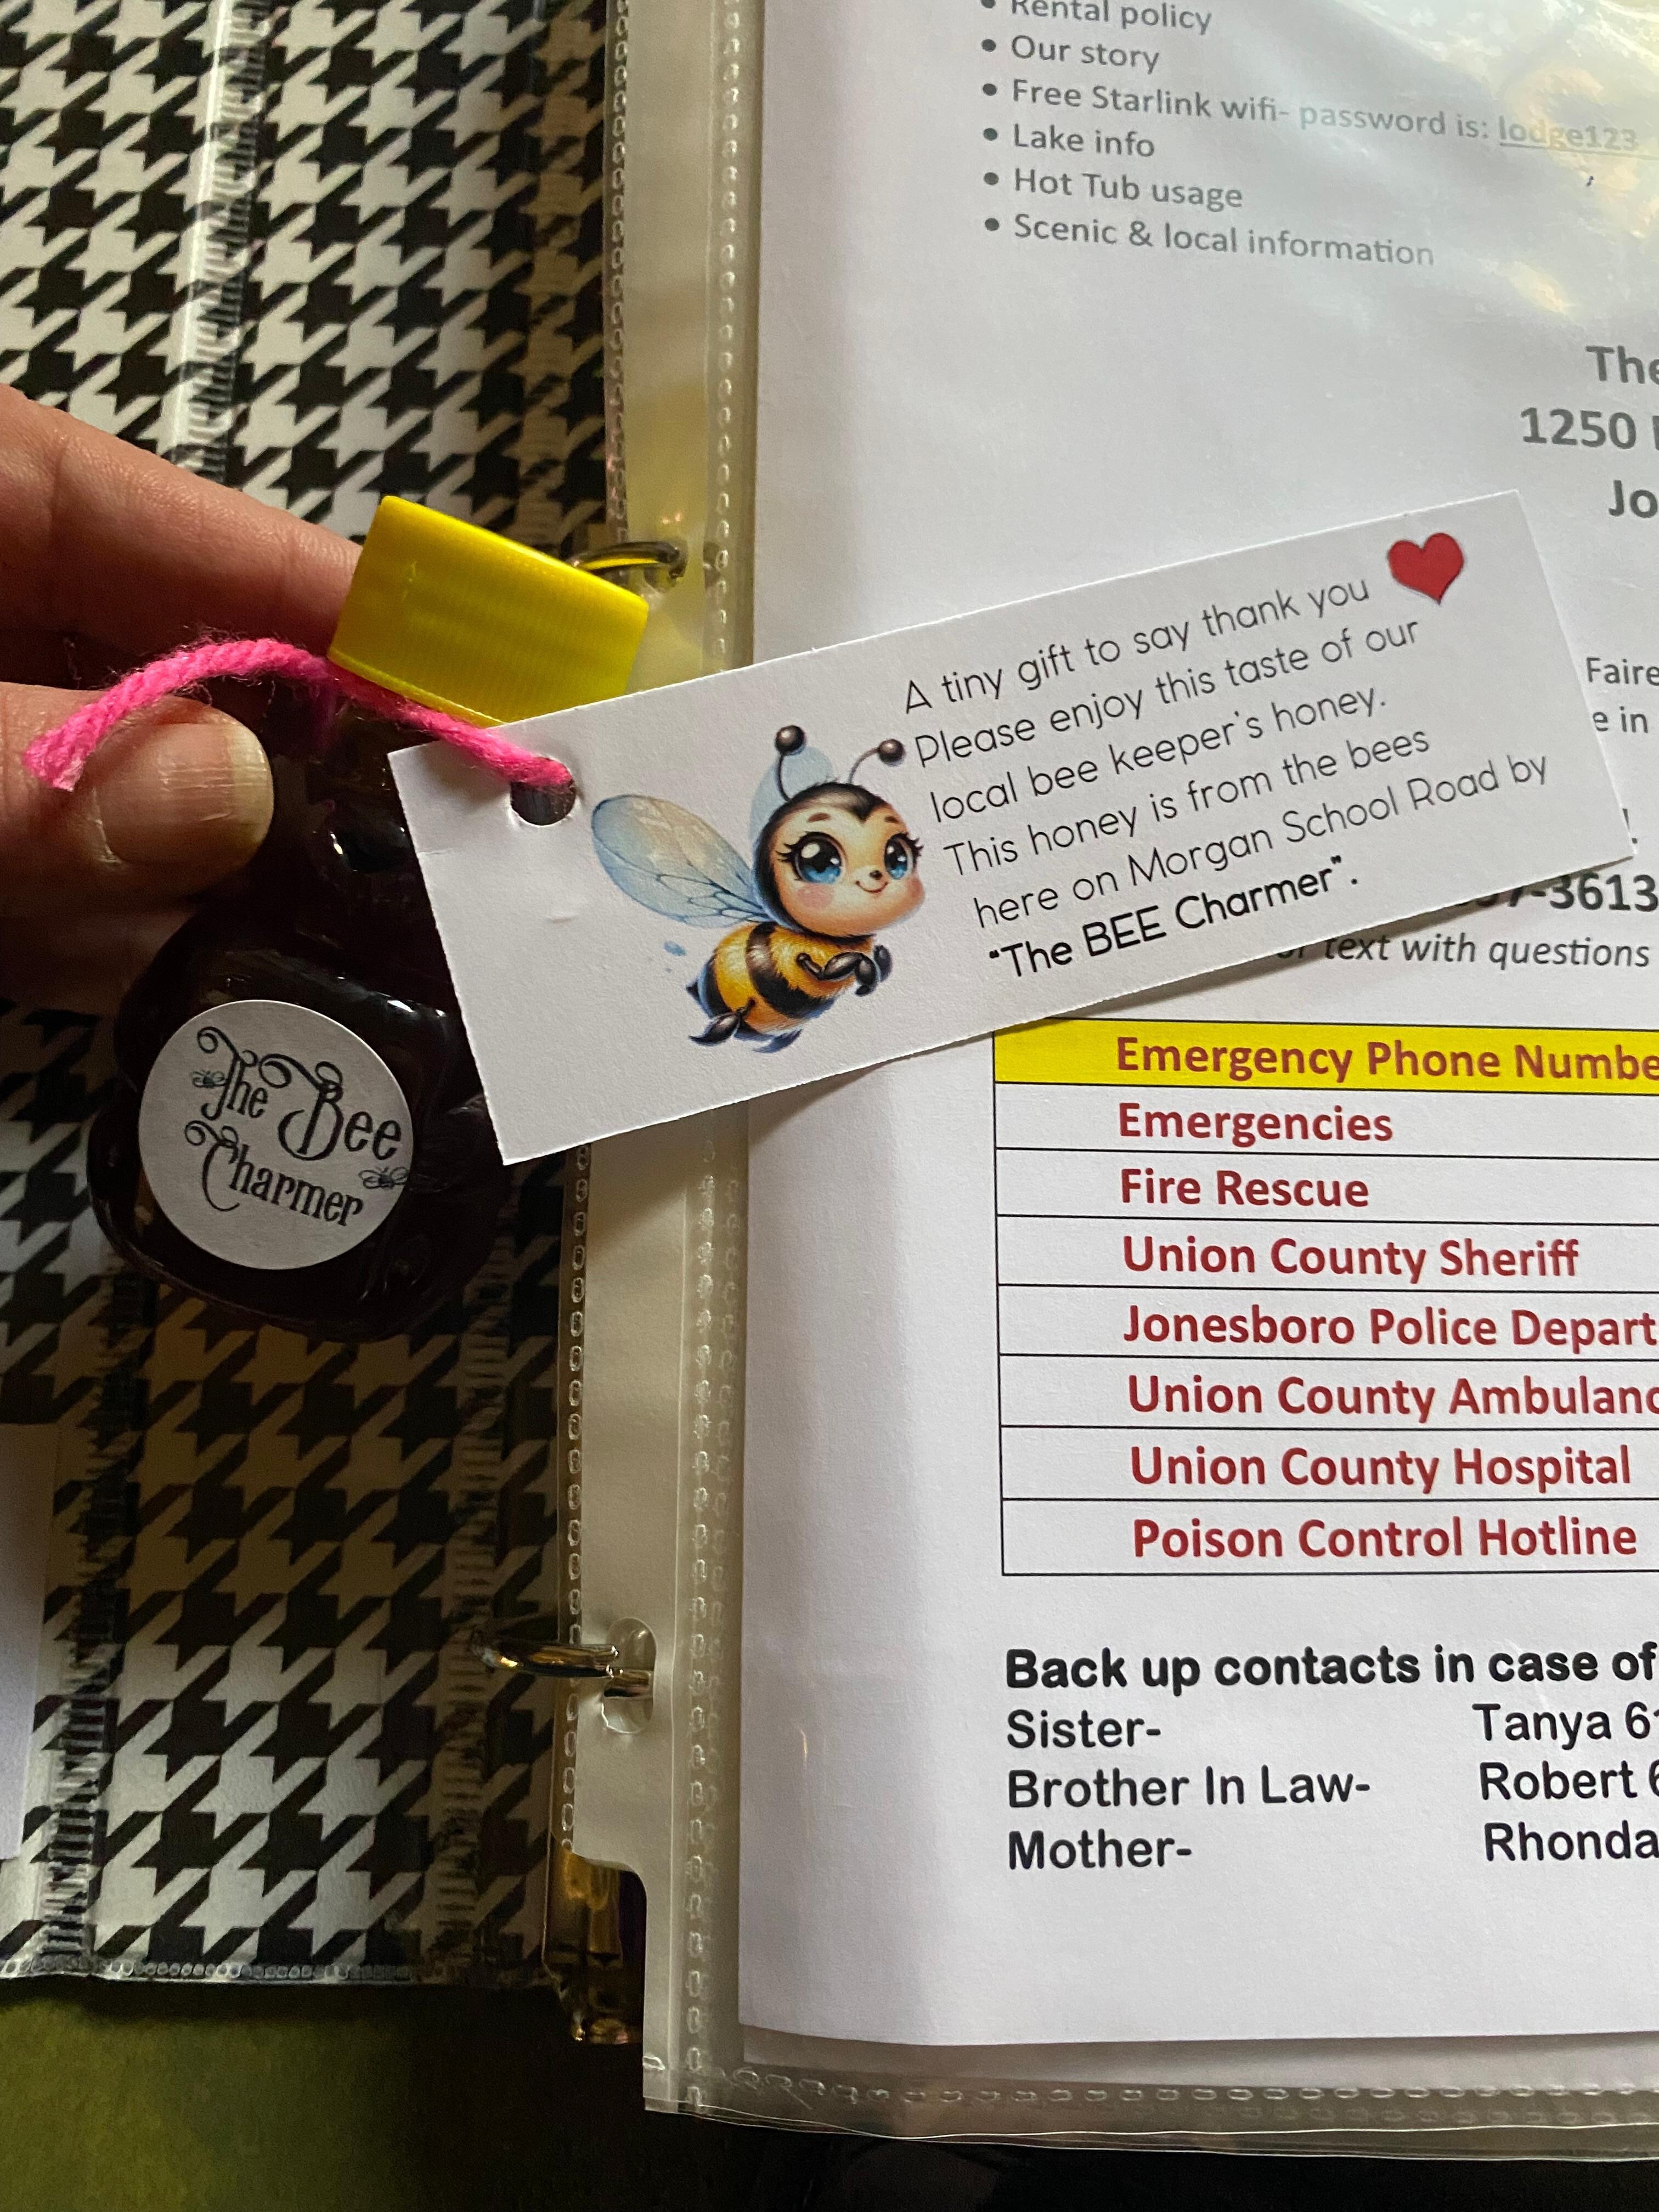 Rental policy
Our story
Free Starlink wifi- password is: lodge123
Lake info
Hot Tub usage
Scenic & local information
The
1250
Jo
A tiny gift to say thank you
Please enjoy this taste of our
local bee keeper's honey.
This honey is from the bees
here on Morgan School Road by
"The BEE Charmer".
The Bee
Charmer
Faire
e in
!
7-3613
or text with questions
Emergency Phone Numbe
Emergencies
Fire Rescue
Union County Sheriff
Jonesboro Police Depart
Union County Ambulanc
Union County Hospital
Poison Control Hotline
Back up contacts in case of
Sister- Tanya 6
Brother In Law- Robert 6
Mother- Rhonda